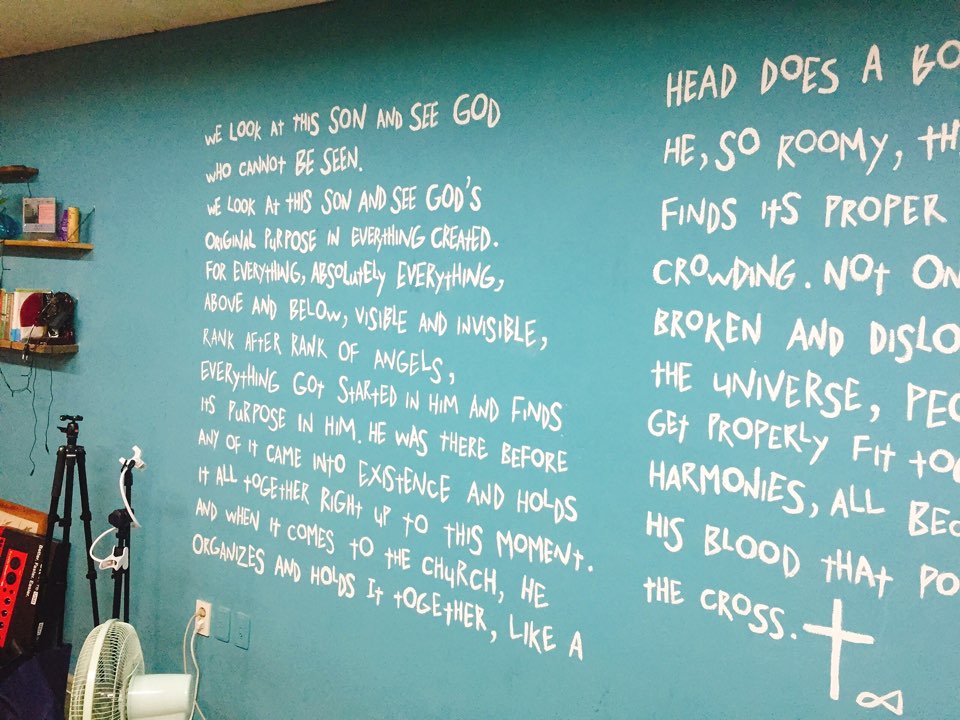 WE LOOK AT THIS SON AND SEE GOD
WHO CANNOT BE SEEN.
WE LOOK AT THIS SON AND SEE GOD'S
ORIGINAL PURPOSE IN EVERYTHING CREATED.
FOR EVERYTHING, ABSOLUTELY EVERYTHING,
ABOVE AND BELOW, VISIBLE AND INVISIBLE,
RANK AFTER RANK OF ANGELS,
EVERYTHING GOT STARTED IN HIM AND FINDS
ITS PURPOSE IN HIM. HE WAS THERE BEFORE
ANY OF IT CAME INTO EXISTENCE AND HOLDS
IT ALL TOGETHER RIGHT UP TO THIS MOMENT.
AND WHEN IT COMES TO THE CHURCH, HE
ORGANIZES AND HOLDS IT TOGETHER, LIKE A
HEAD DOES A BO
HE, SO ROOMY, TH
FINDS ITS PROPER
CROWDING. NOT ON
BROKEN AND DISLO
THE UNIVERSE, PEO
GET PROPERLY FIT TOG
HARMONIES, ALL BEC
HIS BLOOD THAT PO
THE CROSS.